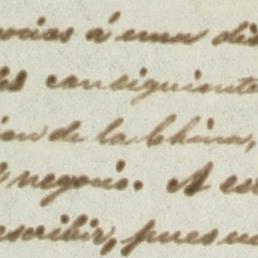 ocios á una dis
les consiguiente
ion de la China,
l negocio. A es
escribir, pues un